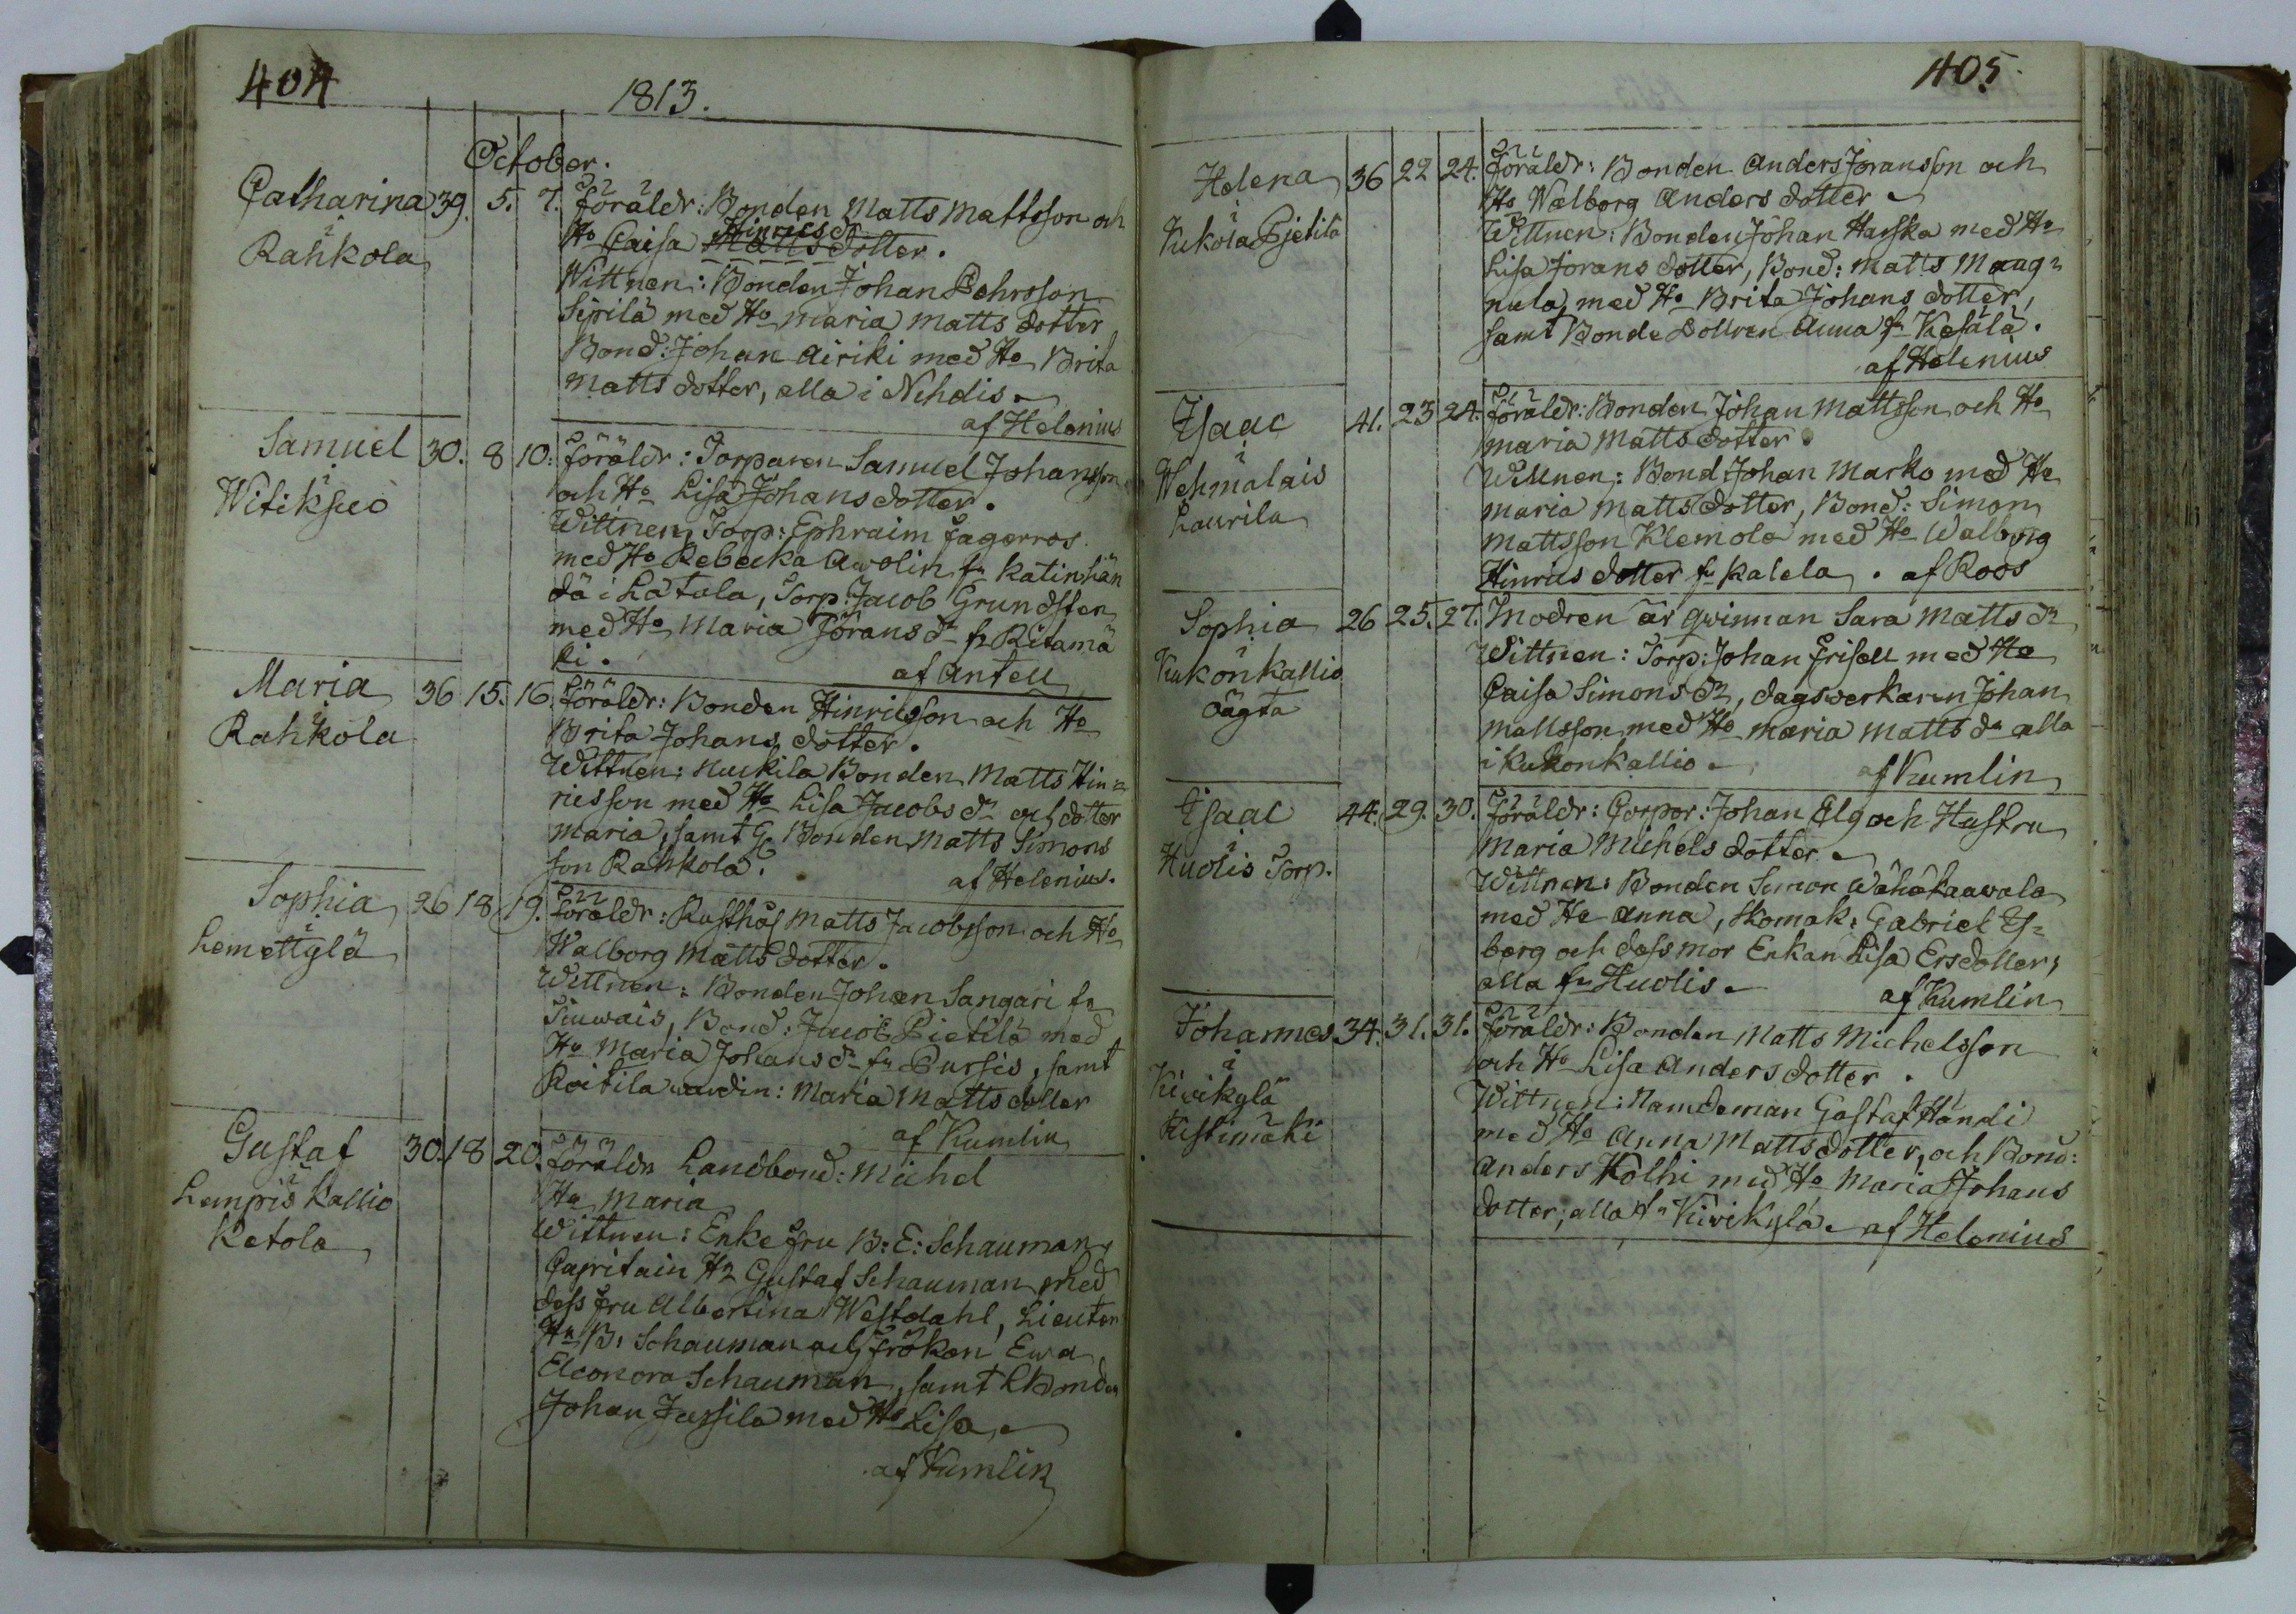 404
1813.
October.
Catharina 39. 5. 7. Föräldr: Bonden Matts Mattsson och
i
Rahkola
Ho Caisa Hinricsd Matts dotter.
Wittnen: Bonden Johan Pehrsson
Sipilä med Ho Maria Matts dotter
Bond: Johan Airiki med Ho Brita
Matts dotter, alla i Nihdis.
af Helenius
Samuel 30. 8 10. Föräldr: Torparen Samuel Johansson
i
Witiksuo
och Ho Lisa Johans dotter.
Wittnen, Torp: Ephraim Fagerros
med Ho Rebecka Awolin fr Katinhän
dä i Latula, Torp: Jacob Grundsten
med Ho Maria Jörans dr fr Ritamä
ki.
af Antell
Maria 36 15. 16. Föräldr: Bonden Hinricsson och Ho
i
Rahkola
Brita Johans dotter.
Wittnen: Huckila Bonden Matts Hin=
ricsson med Ho Lisa Jacobs dr och dotter
Maria, samt Bonden Matts Simons
son Rahkola.
af Helenius.
Sophia 26 18 19. Föräldr: Rusthål Matts Jacobsson och Ho
i
Lemettylä
Walborg Matts dotter.
Wittnen: Bonden Johan Sangari fr
Tiuwais, Bond: Jacob Pietilä med
Ho Maria Johans dr fr Pursis, samt
Roitila wärdin: Maria Matts dotter
af Kumlin
Gustaf 30. 18 20. Föräldr Landbond: Michel
i
Lempis Kallio
Ketola
Ho Maria
Wittnen: Enkefru B: E: Schauman,
Capitain Hr Gustaf Schauman med
dess fru Albertina Westdahl, Lieuten
Hr B: Schauman och Fröken Ewa
Eleonora Schauman, samt LBonden
Johan Jussila med Ho Lisa.
af Kumlin
405.
Helena 36 22 24. Föräldr: Bonden Anders Joransson och
i
Kukola Pjetilä
Ho Walborg Anders dotter
Wittnen: Bonden Johan Hanska med Ho
Lisa Jorans dotter, Bond: Matts Maag=
nula, med Ho Brita Johans dotter,
samt Bonde Dottren Anna fr Kesälä.
af Helenius
Isaac 41. 23 24. Föräldr: Bonden Johan Mattsson och Ho
i
Wehmalais
Laurila
Maria Matts dotter
Wittnen: Bond Johan Marko med Ho
Maria Matts dotter, Bond: Simon
Mattsson Klemola med Ho Walborg
Hinrics dotter fr Kalela. af Roos
Sophia 26 25. 27. Modren är qwinnan Sara Matts dr
i
Kukonkallio
öägta
Wittnen: Torp: Johan Frisell med Ho
Caisa Simons dr, dagswerkaren Johan
Mattsson med Ho Maria Matts dr alla
i Kukonkallio.
af Kumlin
Isaac 44. 29. 30. Föräldr: Corpor: Johan Elg och Hustru
i
Huolis Torp.
Maria Michels dotter
Wittnen: Bonden Simon Wähäkaawala
med Ho Anna, Skomak: Gabriel
berg och dess mor Enkan Lisa Ersdotter,
alla fr Huolis.
af Kumlin
Johannes 34. 31. 31. Föräldr: Bonden Matts Michelsson
i
Kiwikylä
Ristimäki
och Ho Lisa Anders dotter.
Wittnen: Nämdeman Gustaf Händi
med Ho Anna Matts dotter, och Bond:
Anders Kolhi med Ho Maria Johans
dotter; alla fr Kiwikylä. af Helenius